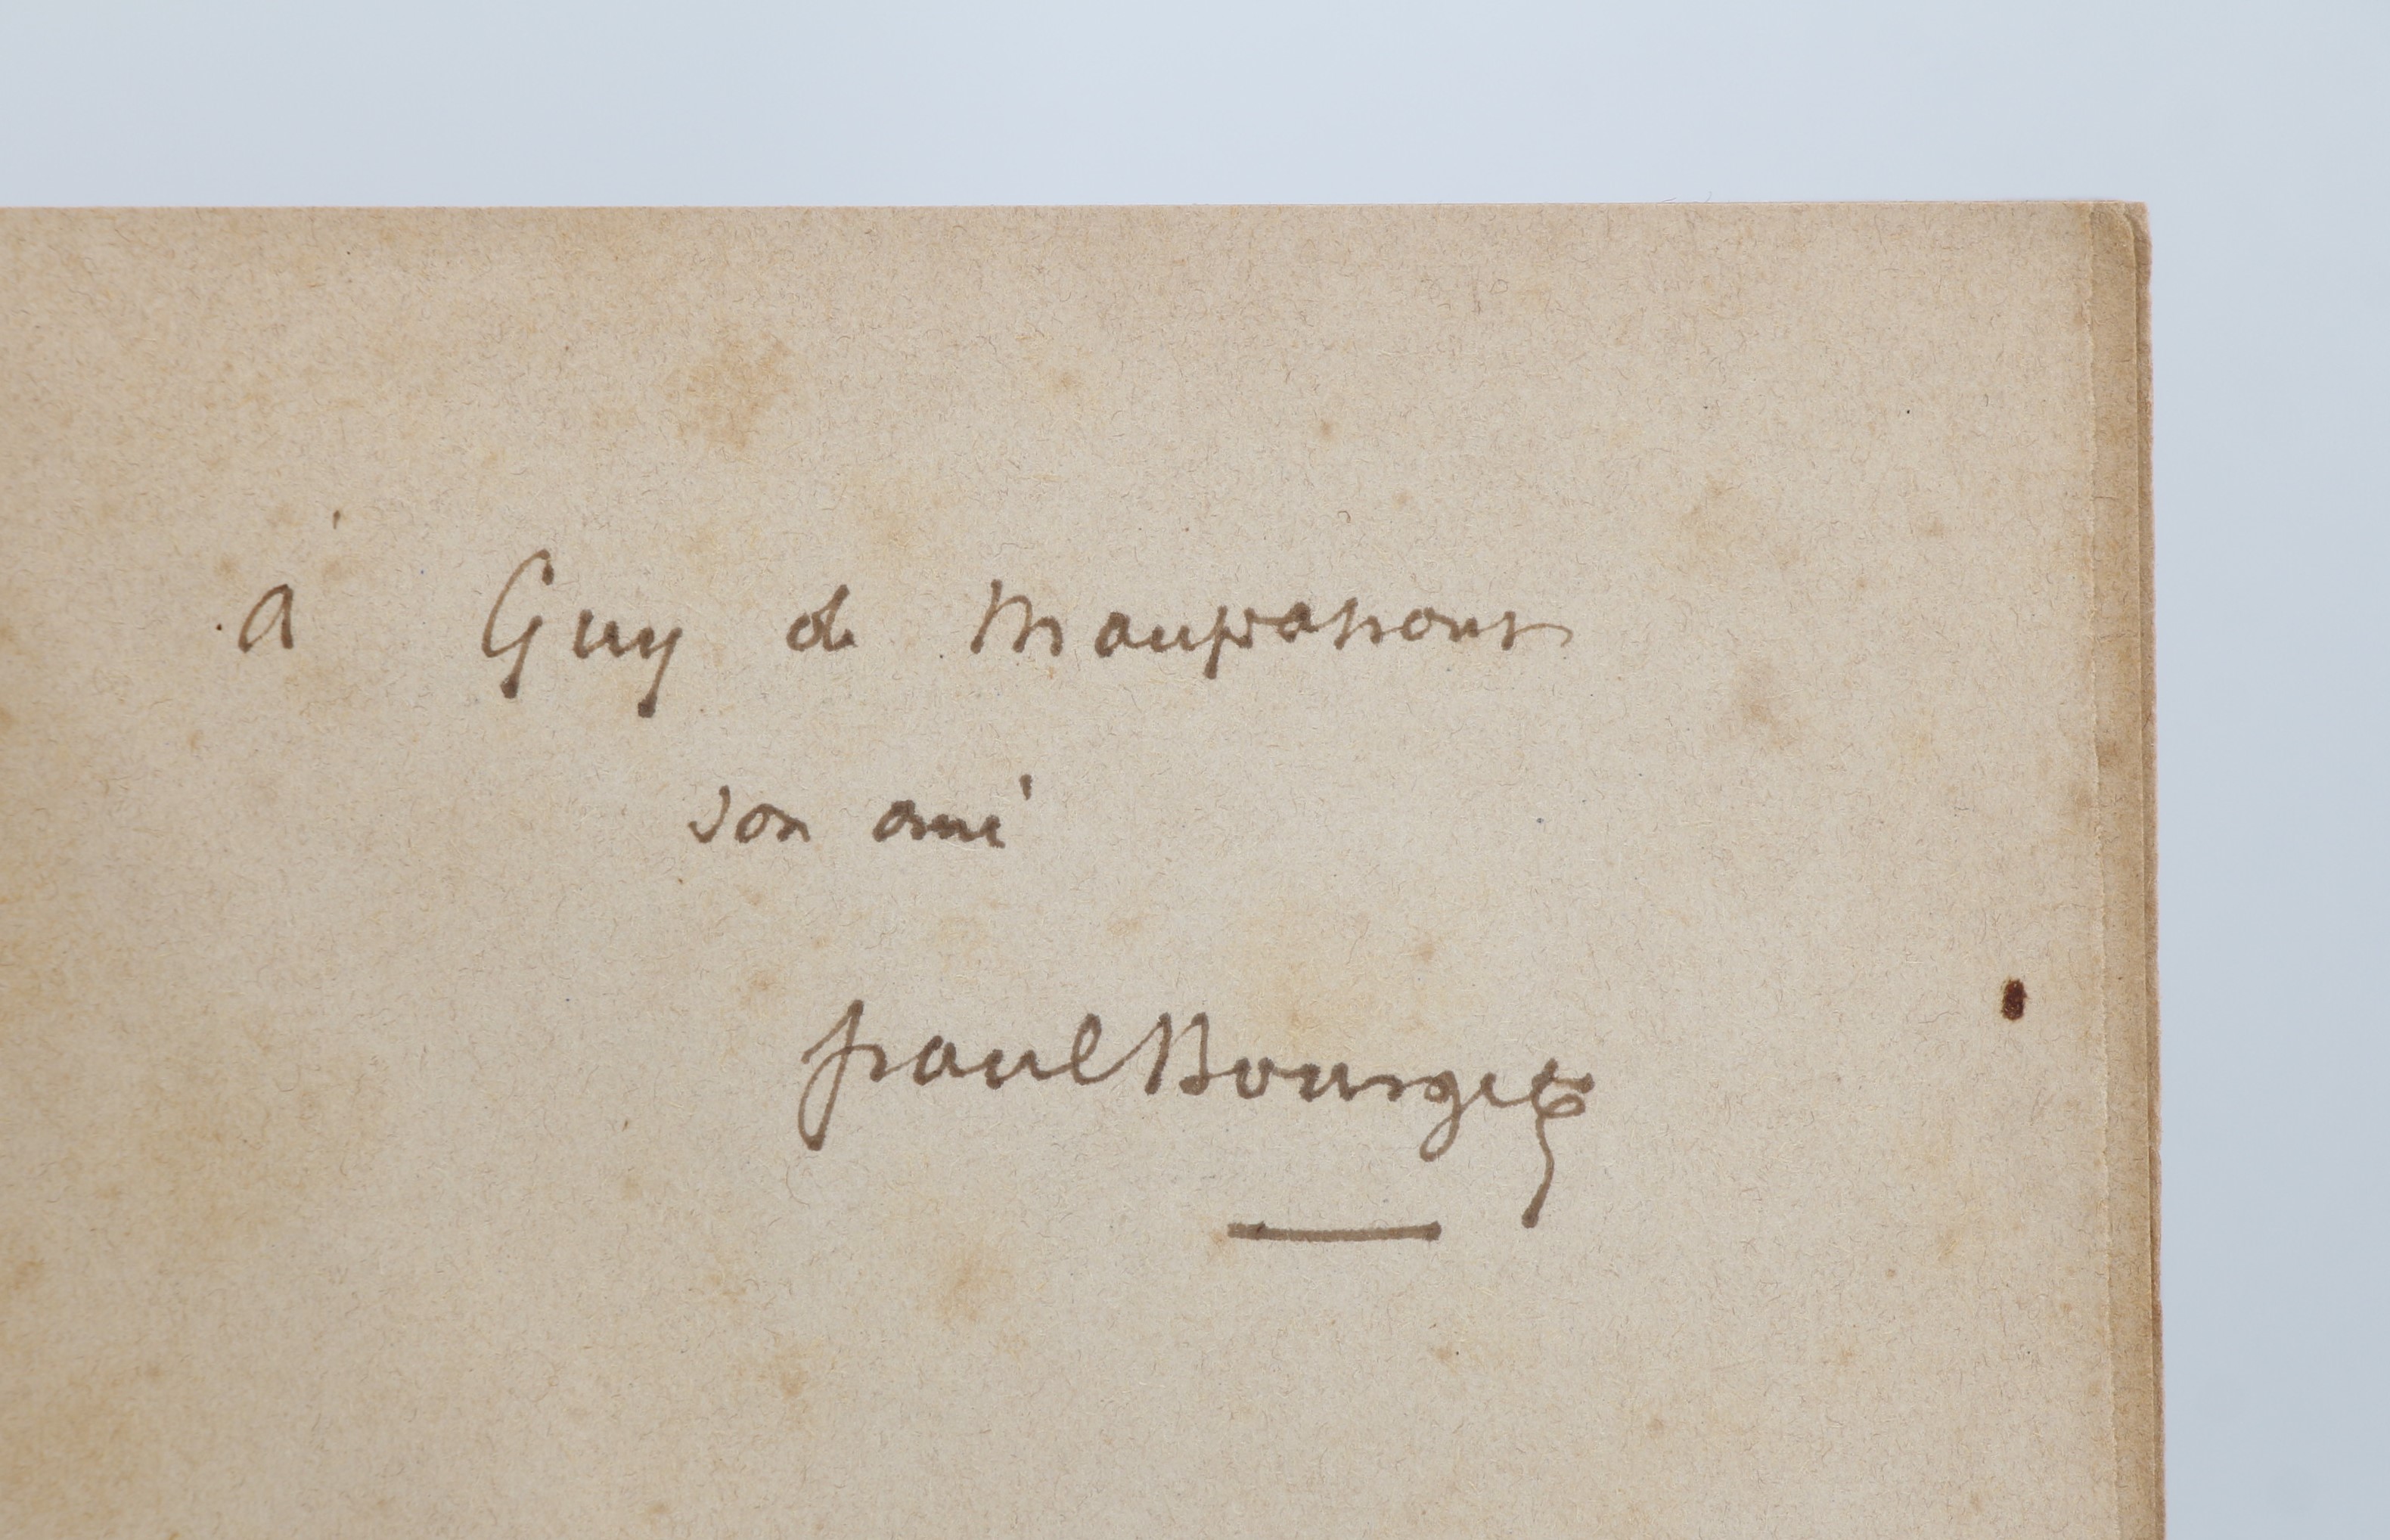 à Guy de Maupassant
son ami
Paul Bourget